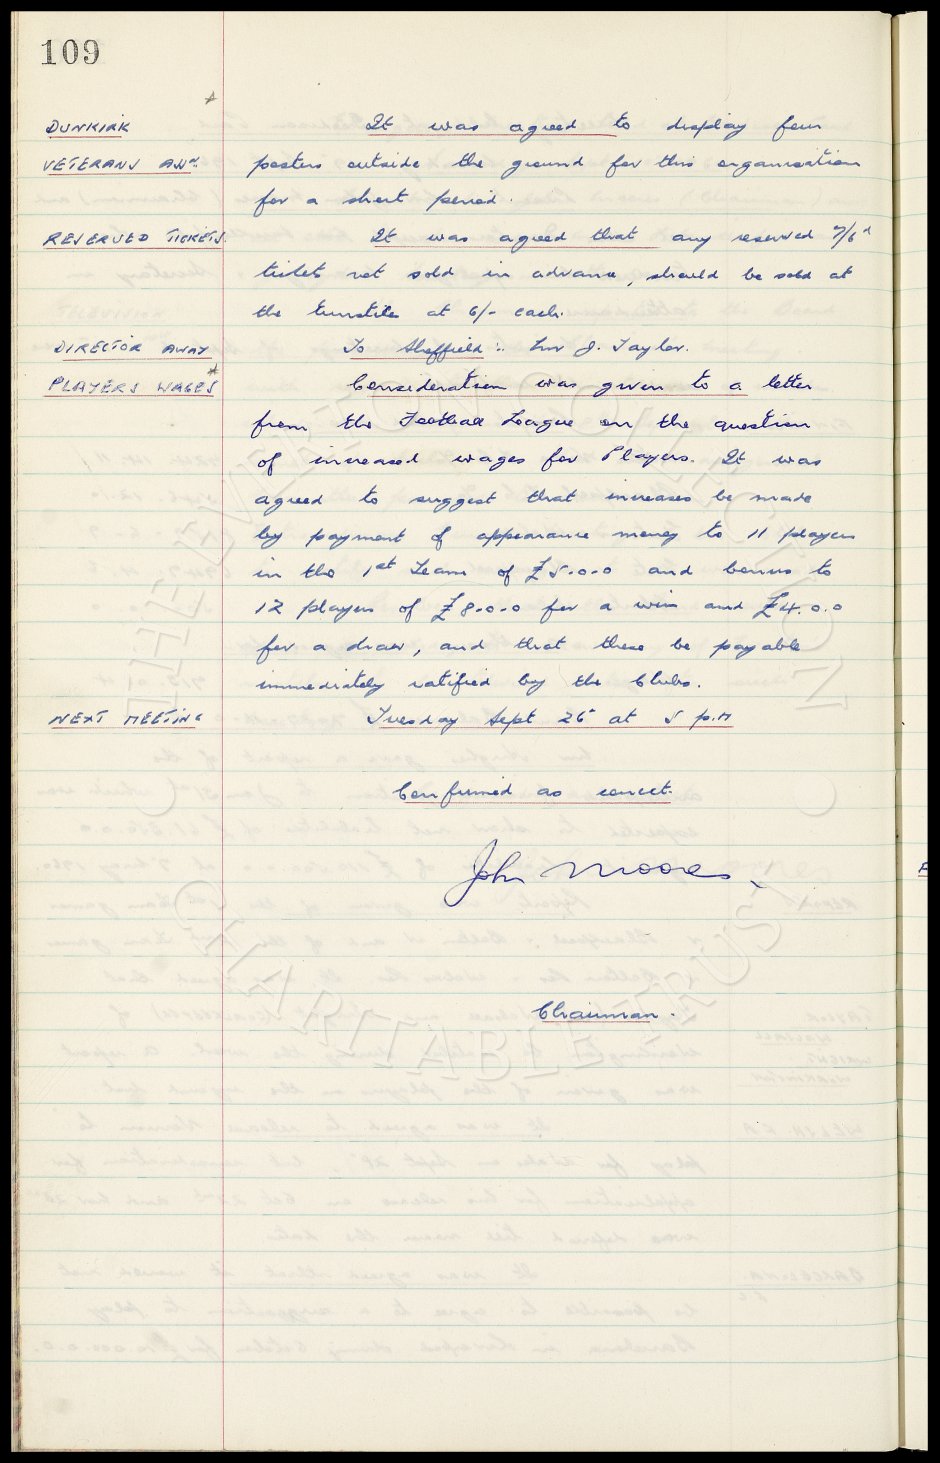 109
DUNKIRK It was agreed to display four
VETERANS ASSN. posters outside the ground for this organisation
for a short period.
RESERVED TICKETS. It was agreed that any reserved 7/6d
tickets not sold in advance, should be sold at
the turnstile at 6/- each.
DIRECTOR AWAY To Sheffield :- Mr J. Taylor.
PLAYERS WAGES Consideration was given to a letter
from the Football League on the question
of increased wages for Players. It was
agreed to suggest that increases be made
by payment of appearance money to 11 players
in the 1st Team of £5.0.0 and bonus to
12 players of £8.0.0 for a win and £4.0.0
for a draw, and that these be payable
immediately ratified by the Clubs.
NEXT MEETING Tuesday Sept 26 at 5 p.m
Confirmed as correct.
John Moores.
Chairman.
THE EVERTON COLLECTION
CHARITABLE TRUST